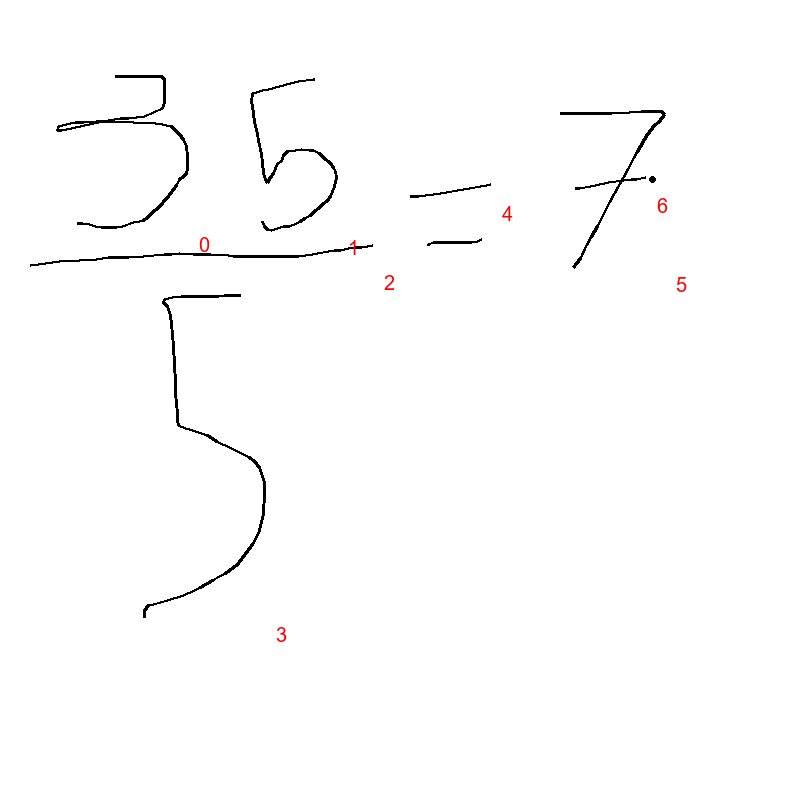 35
5
= 7
0
1
2
3
4
5
6